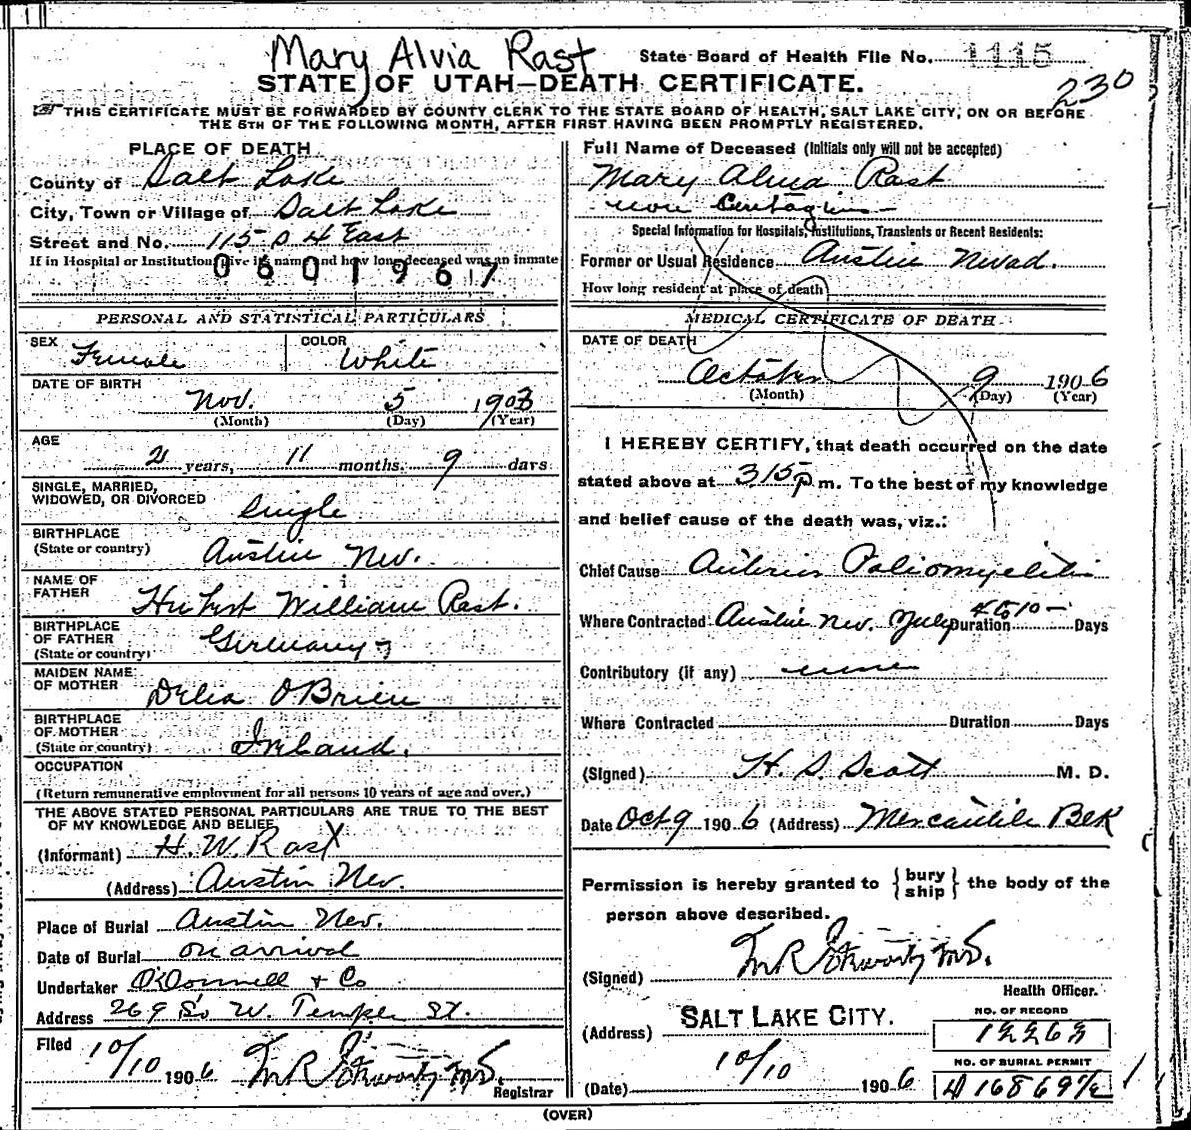 Mary Alvia Rast
State Board of Health File No. 1115
STATE OF UTAH—DEATH CERTIFICATE.
230
THIS CERTIFICATE MUST BE FORWARDED BY COUNTY CLERK TO THE STATE BOARD OF HEALTH, SALT LAKE CITY, ON OR BEFORE
THE 5TH OF THE FOLLOWING MONTH, AFTER FIRST HAVING BEEN PROMPTLY REGISTERED.
PLACE OF DEATH
County of Salt Lake
City, Town or Village of Salt Lake
Street and No. 115 So 4 East
If in Hospital or Institution give its name and how long deceased was an inmate
0601967
PERSONAL AND STATISTICAL PARTICULARS
SEX Female COLOR White
DATE OF BIRTH
Nov. 5 1903
(Month) (Day) (Year)
AGE
2 years, 11 months. 9 days
SINGLE, MARRIED,
WIDOWED, OR DIVORCED Single
BIRTHPLACE
(State or country) Austin Nev.
NAME OF
FATHER William Rast.
BIRTHPLACE
OF FATHER
(State or country) Germany
MAIDEN NAME
OF MOTHER Delia O'Brien
BIRTHPLACE
OF MOTHER
(State or country) Ireland.
OCCUPATION
(Return remunerative employment for all persons 10 years of age and over.)
THE ABOVE STATED PERSONAL PARTICULARS ARE TRUE TO THE BEST
OF MY KNOWLEDGE AND BELIEF
(Informant) H. W. Rast
(Address) Austin Nev.
Place of Burial Austin Nev.
Date of Burial on arrival
Undertaker O'Donnell & Co
Address 269 So W. Temple St.
Filed
10/10 1906
Registrar
Full Name of Deceased (Initials only will not be accepted)
Mary Alvia Rast
non Contagious
Special Information for Hospitals, Institutions, Transients or Recent Residents:
Former or Usual Residence Austin Nevad.
How long resident at place of death
MEDICAL CERTIFICATE OF DEATH
DATE OF DEATH
October 9 1906
(Month) (Day) (Year)
I HEREBY CERTIFY, that death occurred on the date
stated above at 315 p m. To the best of my knowledge
and belief cause of the death was, viz.:
Chief Cause Anterior Poliomyelitis
Where Contracted Austin Nev. July Duration 4 to 10 — Days
Contributory (if any) none
Where Contracted Duration Days
(Signed) H. S. Scott M. D.
Date Oct 9 1906 (Address) Mercantile Blk
Permission is hereby granted to {bury ship} the body of the
person above described.
(Signed)
Health Officer.
(Address) SALT LAKE CITY.
NO. OF RECORD
12263
NO. OF BURIAL PERMIT
(Date) 10/10 1906
(OVER)